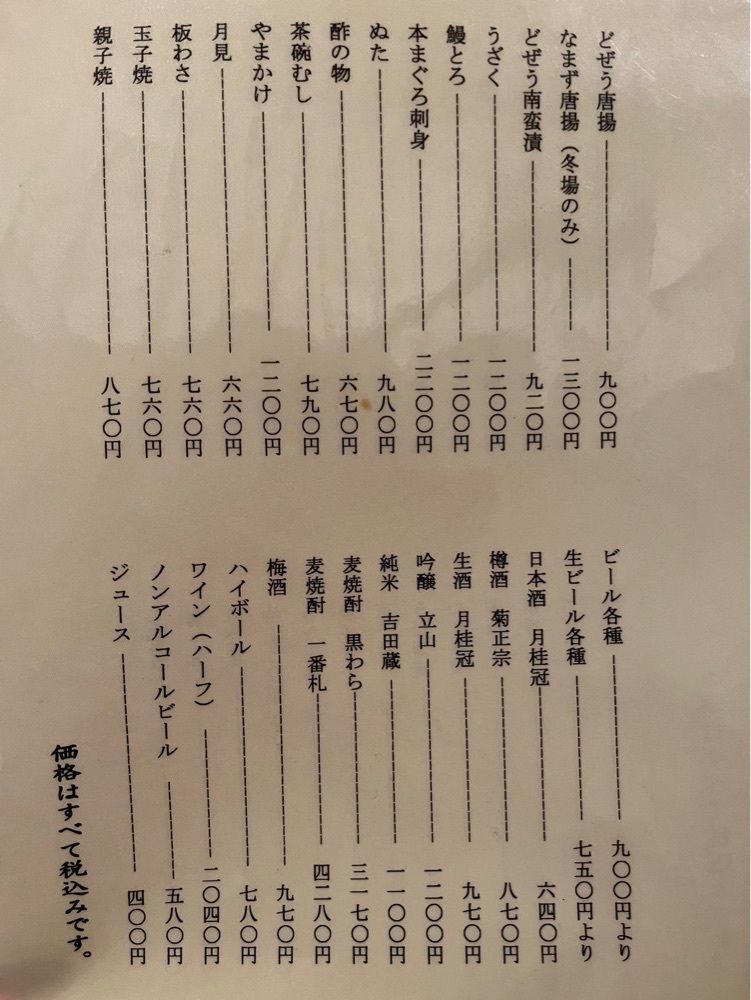 どぜう唐揚 九〇〇円
なまず唐揚(冬場のみ) 一三〇〇円
どぜう南蛮漬 九二〇円
うざく 一二〇〇円
鰻とろ 一二〇〇円
本まぐろ刺身 二二〇〇円
ぬた 九八〇円
酢の物 六七〇円
茶碗むし 七九〇円
やまかけ 一二〇〇円
月見 六六〇円
板わさ 七六〇円
玉子焼 七六〇円
親子焼 八七〇円
ビール各種 九〇〇円より
生ビール各種 七五〇円より
日本酒 月桂冠 六四〇円
樽酒 菊正宗 八七〇円
生酒 月桂冠 九七〇円
吟醸 立山 一二〇〇円
純米 吉田蔵 一一〇〇円
麦焼酎 黒わら 三一七〇円
麦焼酎 一番札 四二八〇円
梅酒 九七〇円
ハイボール 七八〇円
ワイン(ハーフ) 二〇四〇円
ノンアルコールビール 五八〇円
ジュース 四〇〇円
価格はすべて税込みです。